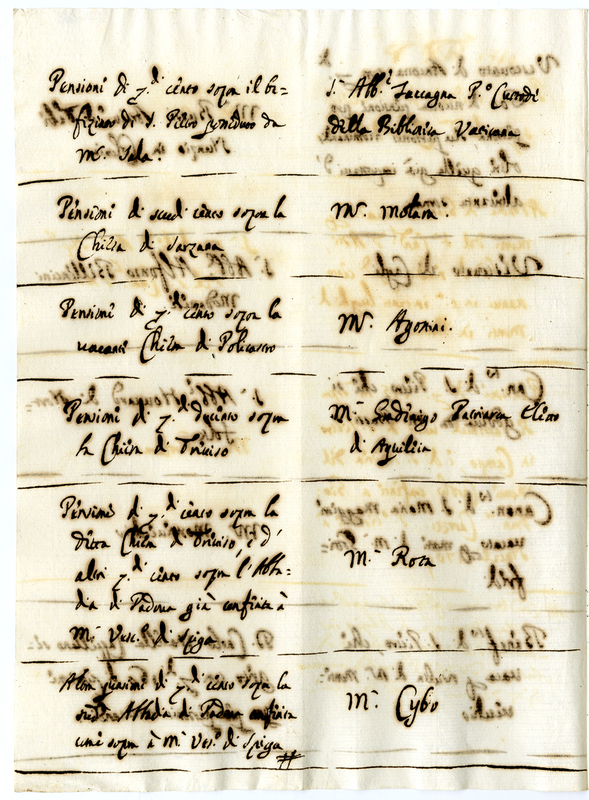 Pensioni di z.di cento sopra il be=
fizino di S. Pietro
Mr. Sala.
S. Abb.e Zaccagna P.o Custode
della Biblioteca Vaticana
Pensioni di scudi cento sopra la
Chiesa di Sarzana
Mr. Molara.
Pensioni di z.di cento sopra la
vacante Chiesa di Policastro
Mr. Agonini.
Pensioni di z.di ducento sopra
la Chiesa di Treviso
Mr. Patriarca Eletto
di Aquileia
Pensioni di z.di cento sopra la
detta Chiesa di Treviso, e d'
altri z.di cento sopra l'Abba=
dia di Padova già conferita à
Mr. Vesc.o di Spiga
Mr. Rota
Altra pensioni di z.di cento sopra la
sud.a Abbadia di Padova conferita
come sopra à Mr. Ves.o di Spiga
Mr. Cybo